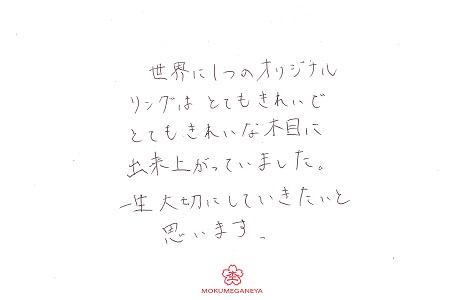 世界に1つのオリジナル
リングは とてもきれいで
とてもきれいな木目に
出来上がっていました。
一生大切にしていきたいと
思います。
MOKUMEGANEYA